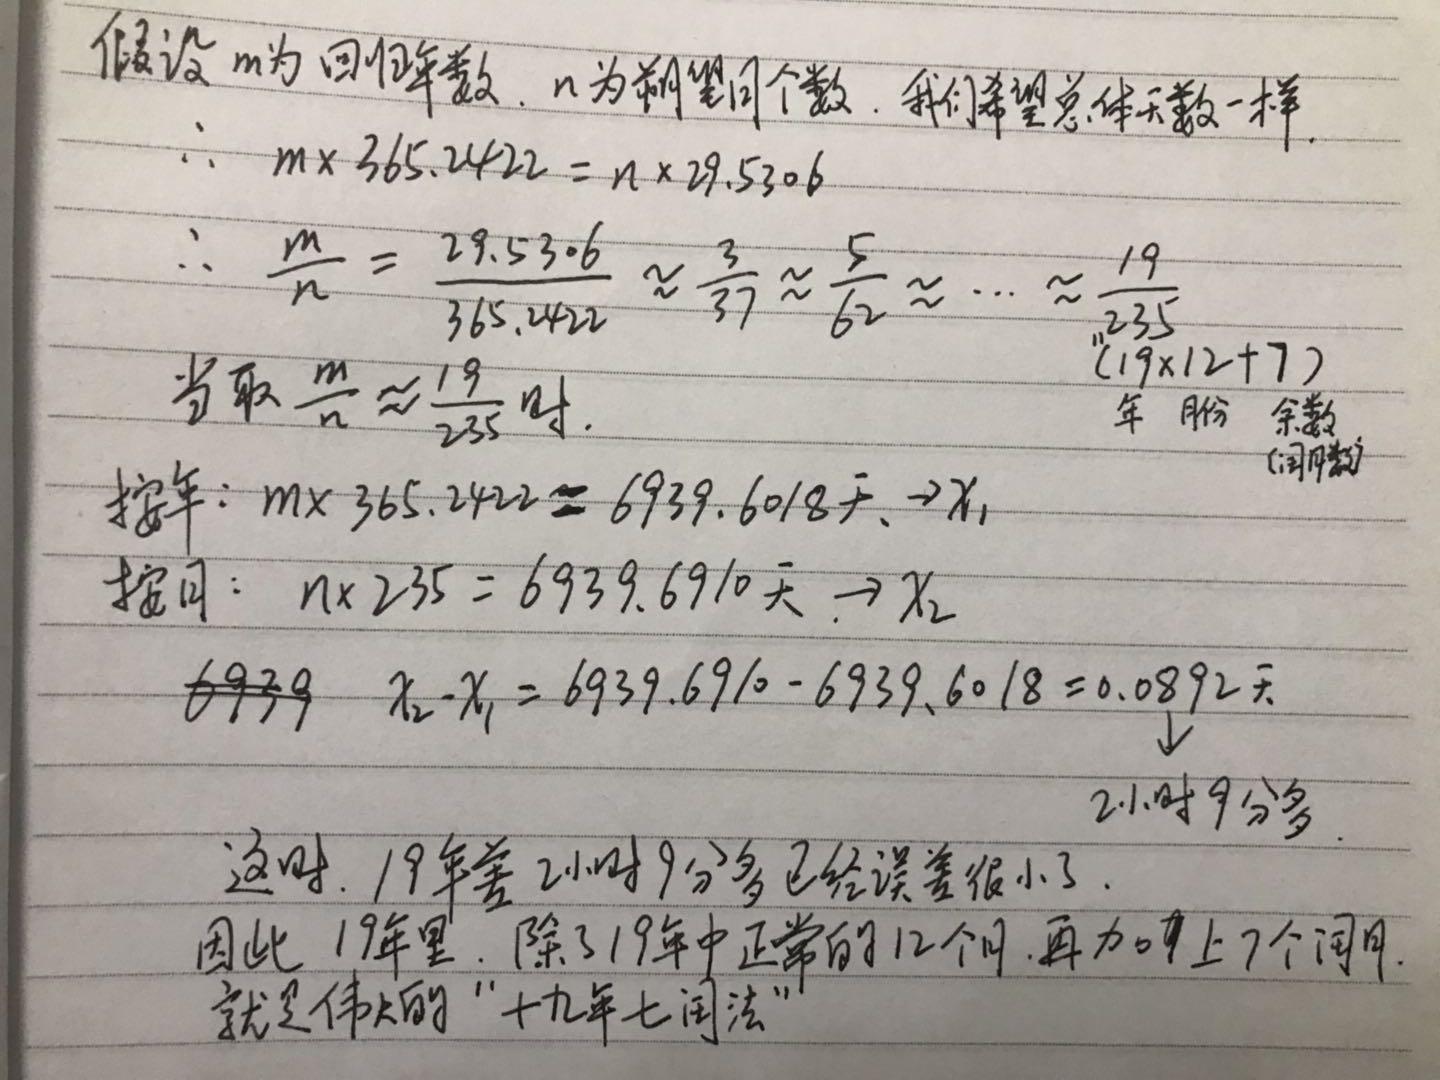 假设m为回归年数. n为朔望月个数. 我们希望总体天数一样.
∴ m×365.2422=n×29.5306
∴ m/n = 29.5306/365.2422 ≈ 3/37 ≈ 5/62 ≈ … ≈ 19/235
"(19×12+7)
当取 m/n ≈ 19/235 时.
年 月份 余数
(闰月数)
按年: m×365.2422=6939.6018天. →x₁
按月: n×235=6939.6910天. →x₂
6939 x₂-x₁=6939.6910-6939.6018=0.0892天
↓
2小时9分多.
这时. 19年差2小时9分多已经误差很小了.
因此 19年里. 除了19年中正常的12个月. 再加上7个闰月.
就是伟大的"十九年七闰法"